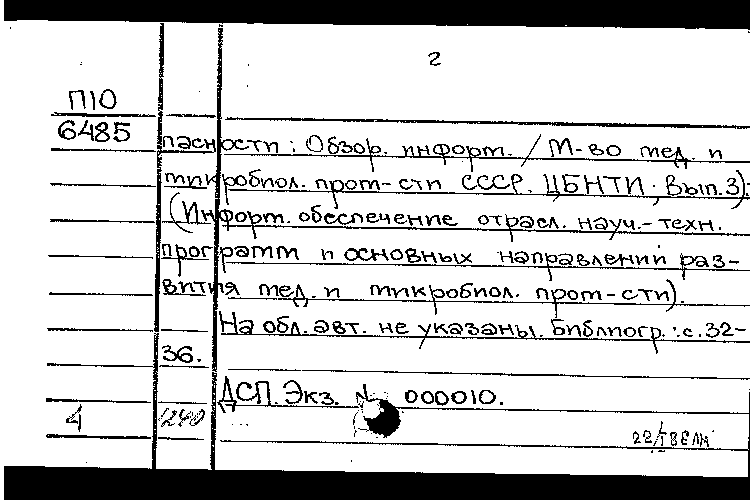 2
П10
6485
пасности: Обзор. информ. / М-во мед. и
микробиол. пром-сти СССР. ЦБНТИ; Вып.3).
(Информ. обеспечение отрасл. науч.-техн.
программ и основных направлений раз-
вития мед. и микробиол. пром-сти).
На обл. авт. не указаны. Библиогр.: с.32-
36.
ДСП. Экз. № 000010.
4 1240